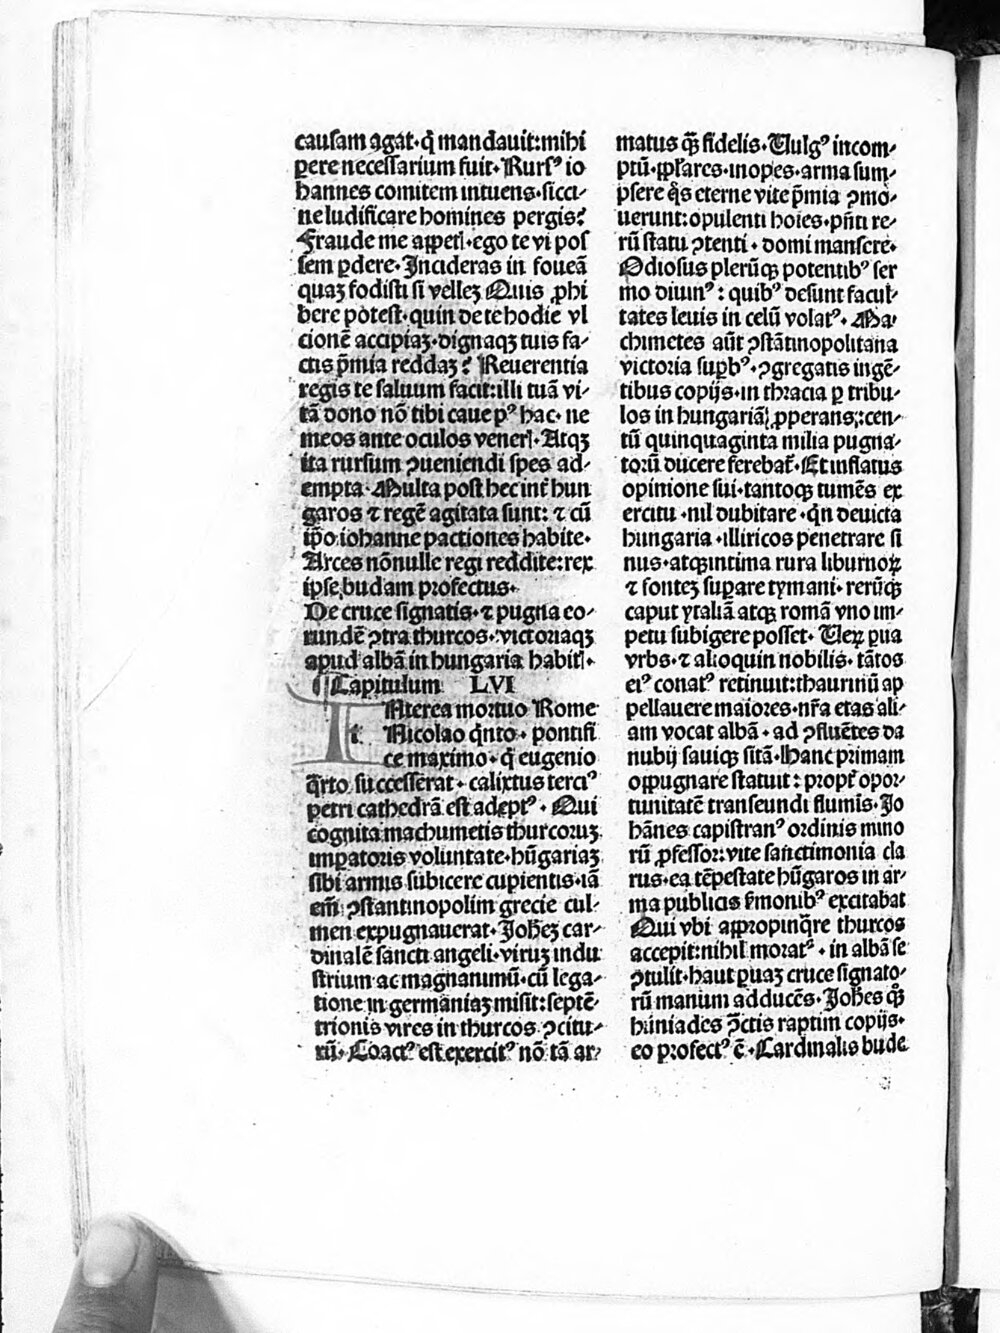 causam agat·q̄ mandauit:mihi
ꝑere necessarium fuit·Rursꝰ io
hannes comitem intuens·sicci-
ne ludificare homines pergis?
Fraude me appetl·ego te vi pos
sem ꝑdere·Incideras in foueā
quaꝫ fodisti si velleꝫ Quis ꝓhi
bere potest·quin de te hodie vl
cionē accipiaꝫ·dignaqꝫ tuis fa-
ctis p̄mia reddaꝫ? Reuerentia
regis te saluum facit:illi tuā vi-
tā dono nō tibi caue pꝰ hac·ne
meos ante oculos venerl·Atqꝫ
ita rursum ꝯueniendi spes ad-
empta·Multa post hec int̄ hun
garos ⁊ regē agitata sunt: ⁊ cū
ip̄o iohanne pactiones habite·
Arces nōnulle regi reddite:rex
ipse budam profectus·
De cruce signatis·⁊ pugna eo-
rundē ꝯtra thurcos·victoriaqꝫ
apud albā in hungaria habitl·
¶Capitulum LVI
INterea mortuo Rome
Nicolao q̄nto·pontifi
ce maximo·q̄ eugenio
q̄rto successerat·calixtus terciꝰ
petri cathedrā est adeptꝰ·Qui
cognita machumetis thurcoruꝫ
imꝑatoris voluntate·hūgariaꝫ
sibi armis subicere cupientis·iā
em̄ ꝯstantinopolim grecie cul-
men expugnauerat·Joheꝫ car-
dinalē sancti angeli·viruꝫ indu
strium ac magnanimū·cū lega-
tione in germaniaꝫ misit:septē-
trionis vires in thurcos ꝯcitu-
rū·Coactꝰ est exercitꝰ nō tā ar-
matus qꝫ̄ fidelis·Uulgꝰ incom-
ptū·pp̄lares·inopes·arma sum-
psere q̄s eterne vite p̄mia ꝯmo-
uerunt:opulenti hoīes·pn̄ti re-
rū statu ꝯtenti·domi mansere·
Odiosus plerūqꝫ potentibꝰ ser
mo diuinꝰ: quibꝰ desunt facul-
tates leuis in celū volatꝰ·Ma-
chimetes aūt ꝯstātinopolitana
victoria suꝑbꝰ·ꝯgregatis ingē-
tibus copijs·in thracia ꝑ tribu-
los in hungariā ꝓperans:cen-
tū quinquaginta milia pugna-
torū ducere ferebat̄·Et inflatus
opinione sui·tantoqꝫ tumēs ex
ercitu·nil dubitare·q̄n deuicta
hungaria·illiricos penetrare si
nus·atqꝫ intima rura liburnoꝝ
⁊ fonteꝫ suꝑare tymani·rerūqꝫ
caput ytaliā atqꝫ romā vno im-
petu subigere posset·Ueꝝ ꝑua
vrbs·⁊ alioquin nobilis·tātos
eiꝰ conatꝰ retinuit:thaurinū ap
pellauere maiores·nr̄a etas ali-
am vocat albā·ad ꝯfluētes da
nubij sauiqꝫ sitā·Hanc primam
oppugnare statuit:propt̄ opor-
tunitatē transeundi flumis·Jo
hānes capistranꝰ ordinis mino
rū ꝓfessor:vite sanctimonia cla
rus·ea tēpestate hūgaros in ar-
ma publicis s̄monibꝰ excitabat
Qui vbi appropinq̄re thurcos
accepit:nihil moratꝰ·in albā se
ꝯtulit·haut ꝑuaꝫ cruce signato-
rū manum adducēs·Johēs qꝫ
huniades ꝯ̄ctis raptim copijs·
eo profectꝰ ē·Cardinalis bude